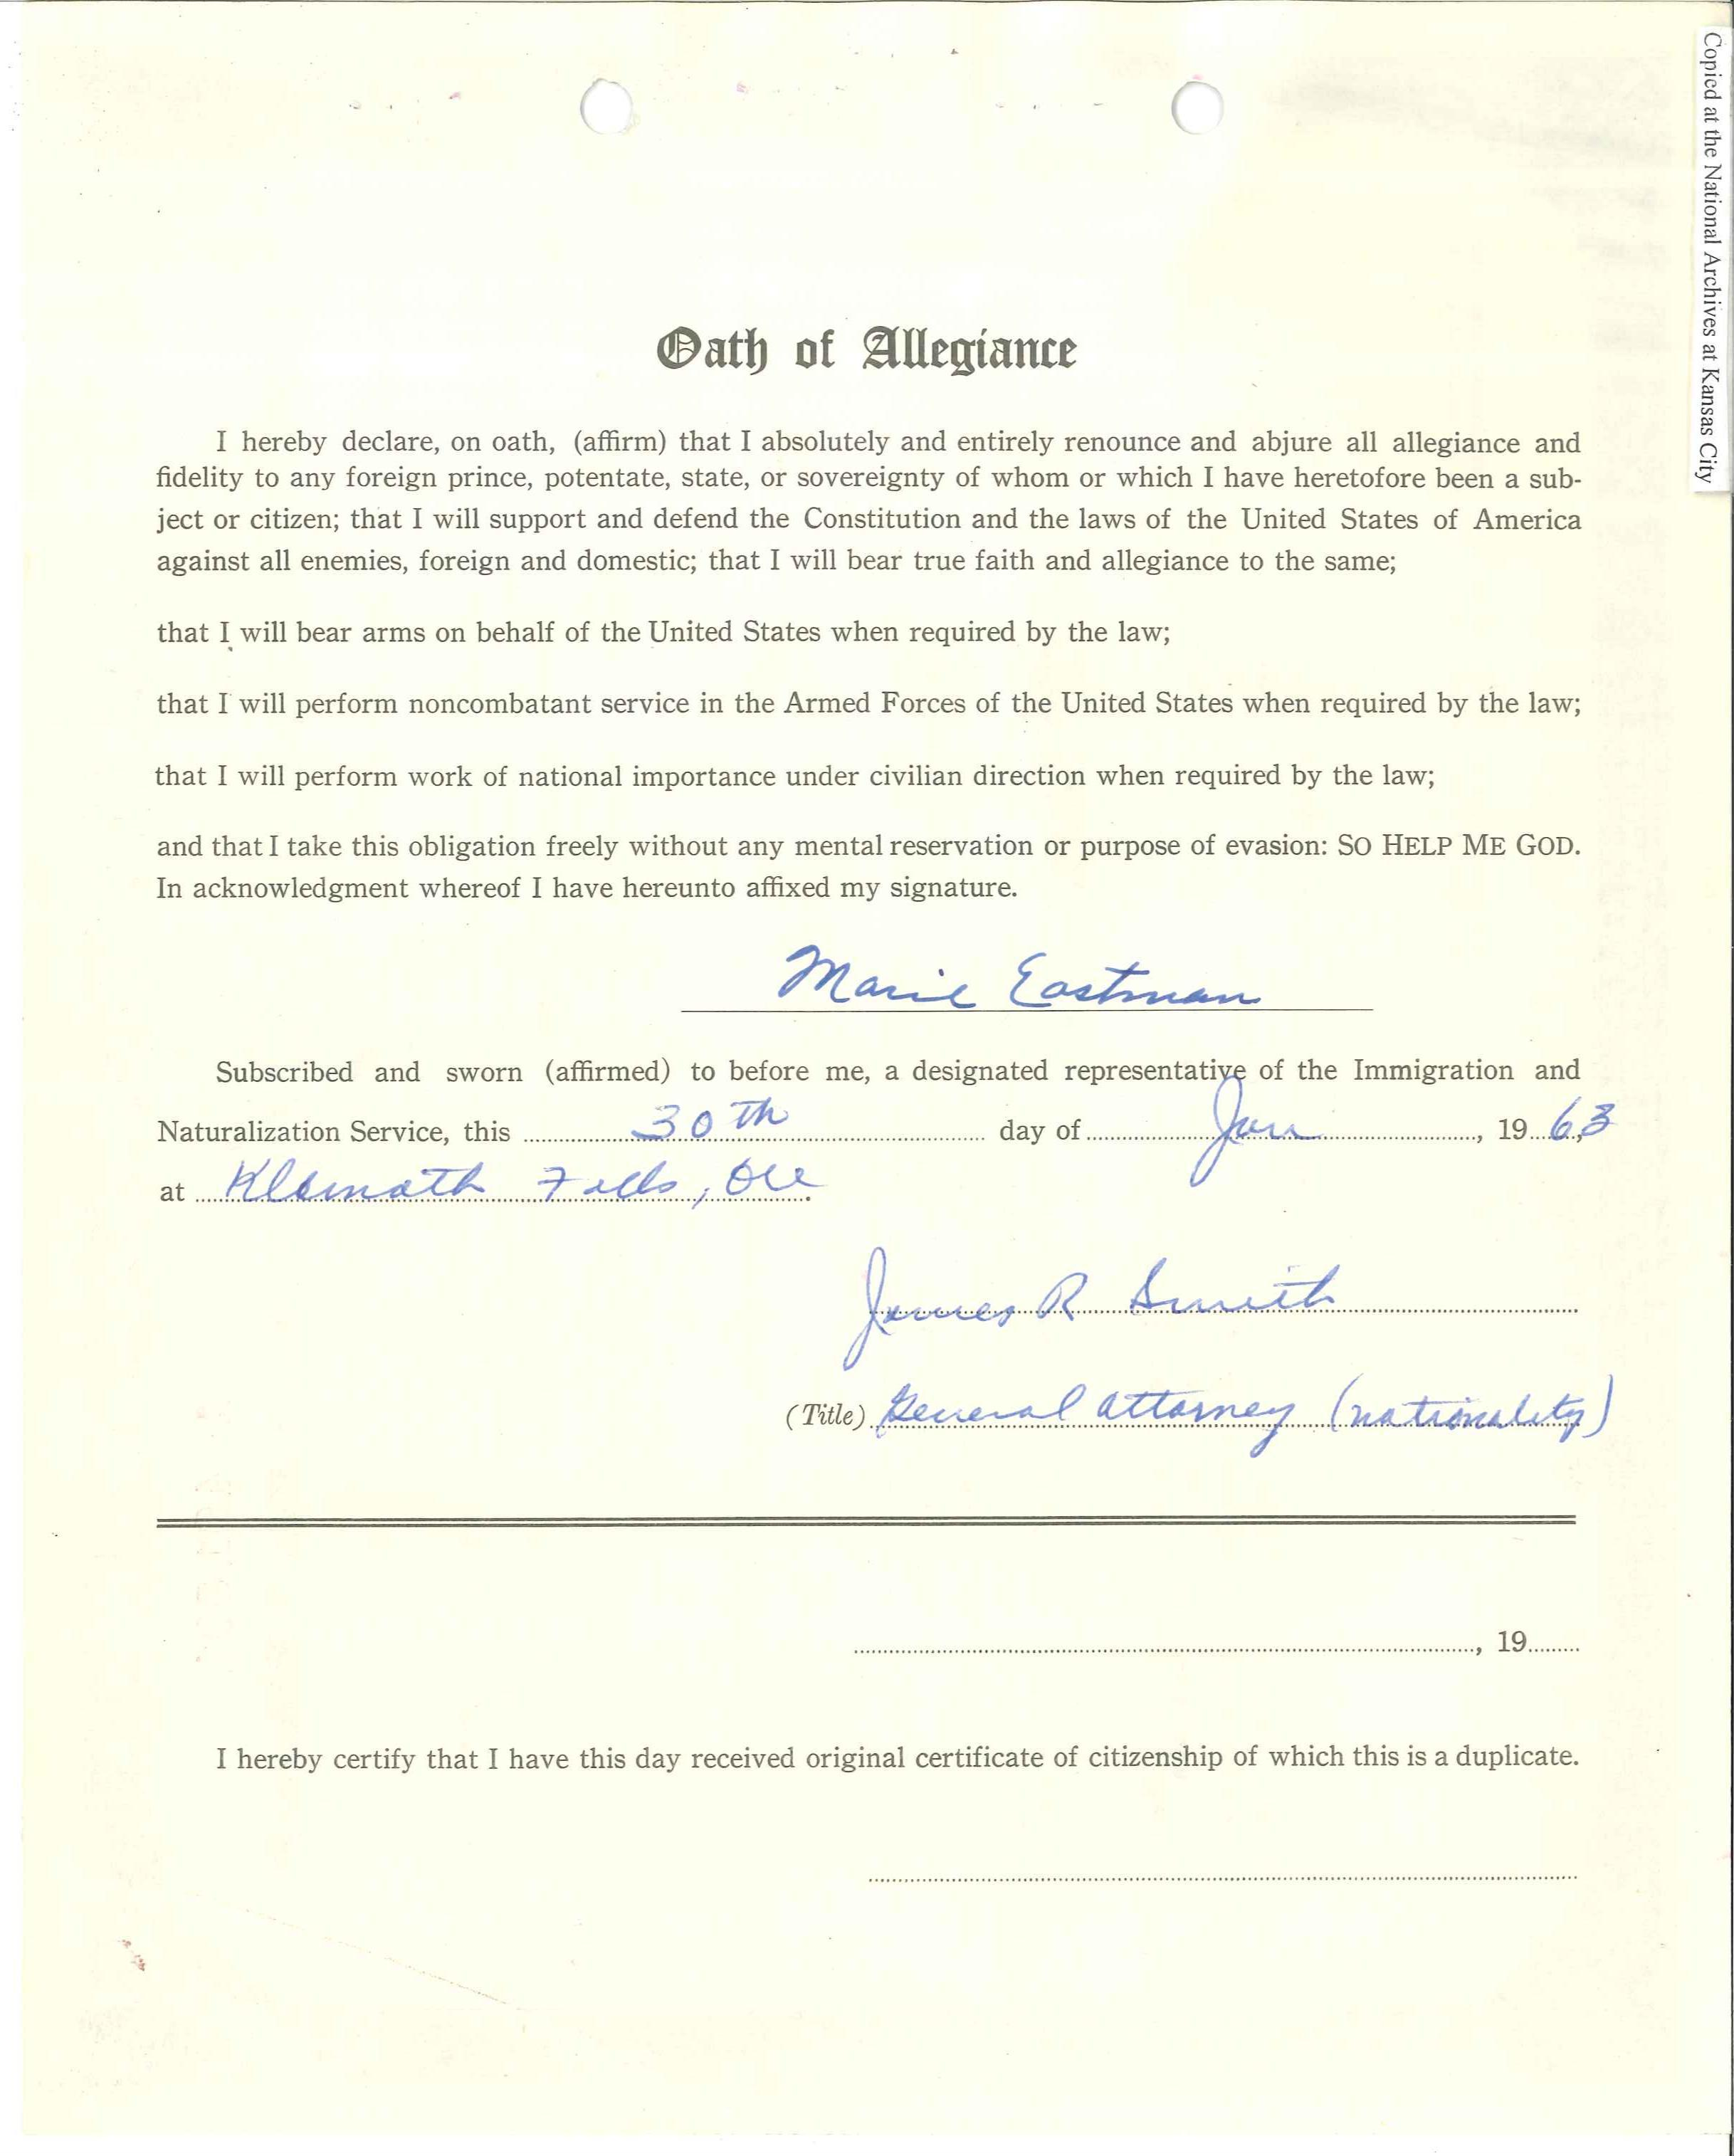 Copied at the National Archives at Kansas City
Oath of Allegiance
I hereby declare, on oath, (affirm) that I absolutely and entirely renounce and abjure all allegiance and
fidelity to any foreign prince, potentate, state, or sovereignty of whom or which I have heretofore been a sub-
ject or citizen; that I will support and defend the Constitution and the laws of the United States of America
against all enemies, foreign and domestic; that I will bear true faith and allegiance to the same;
that I will bear arms on behalf of the United States when required by the law;
that I will perform noncombatant service in the Armed Forces of the United States when required by the law;
that I will perform work of national importance under civilian direction when required by the law;
and that I take this obligation freely without any mental reservation or purpose of evasion: SO HELP ME GOD.
In acknowledgment whereof I have hereunto affixed my signature.
Marie Eastman
Subscribed and sworn (affirmed) to before me, a designated representative of the Immigration and
Naturalization Service, this 30th day of Jan, 1963,
at Klamath Falls, Ore.
James R Smith
(Title) General Attorney (nationality)
, 19
I hereby certify that I have this day received original certificate of citizenship of which this is a duplicate.